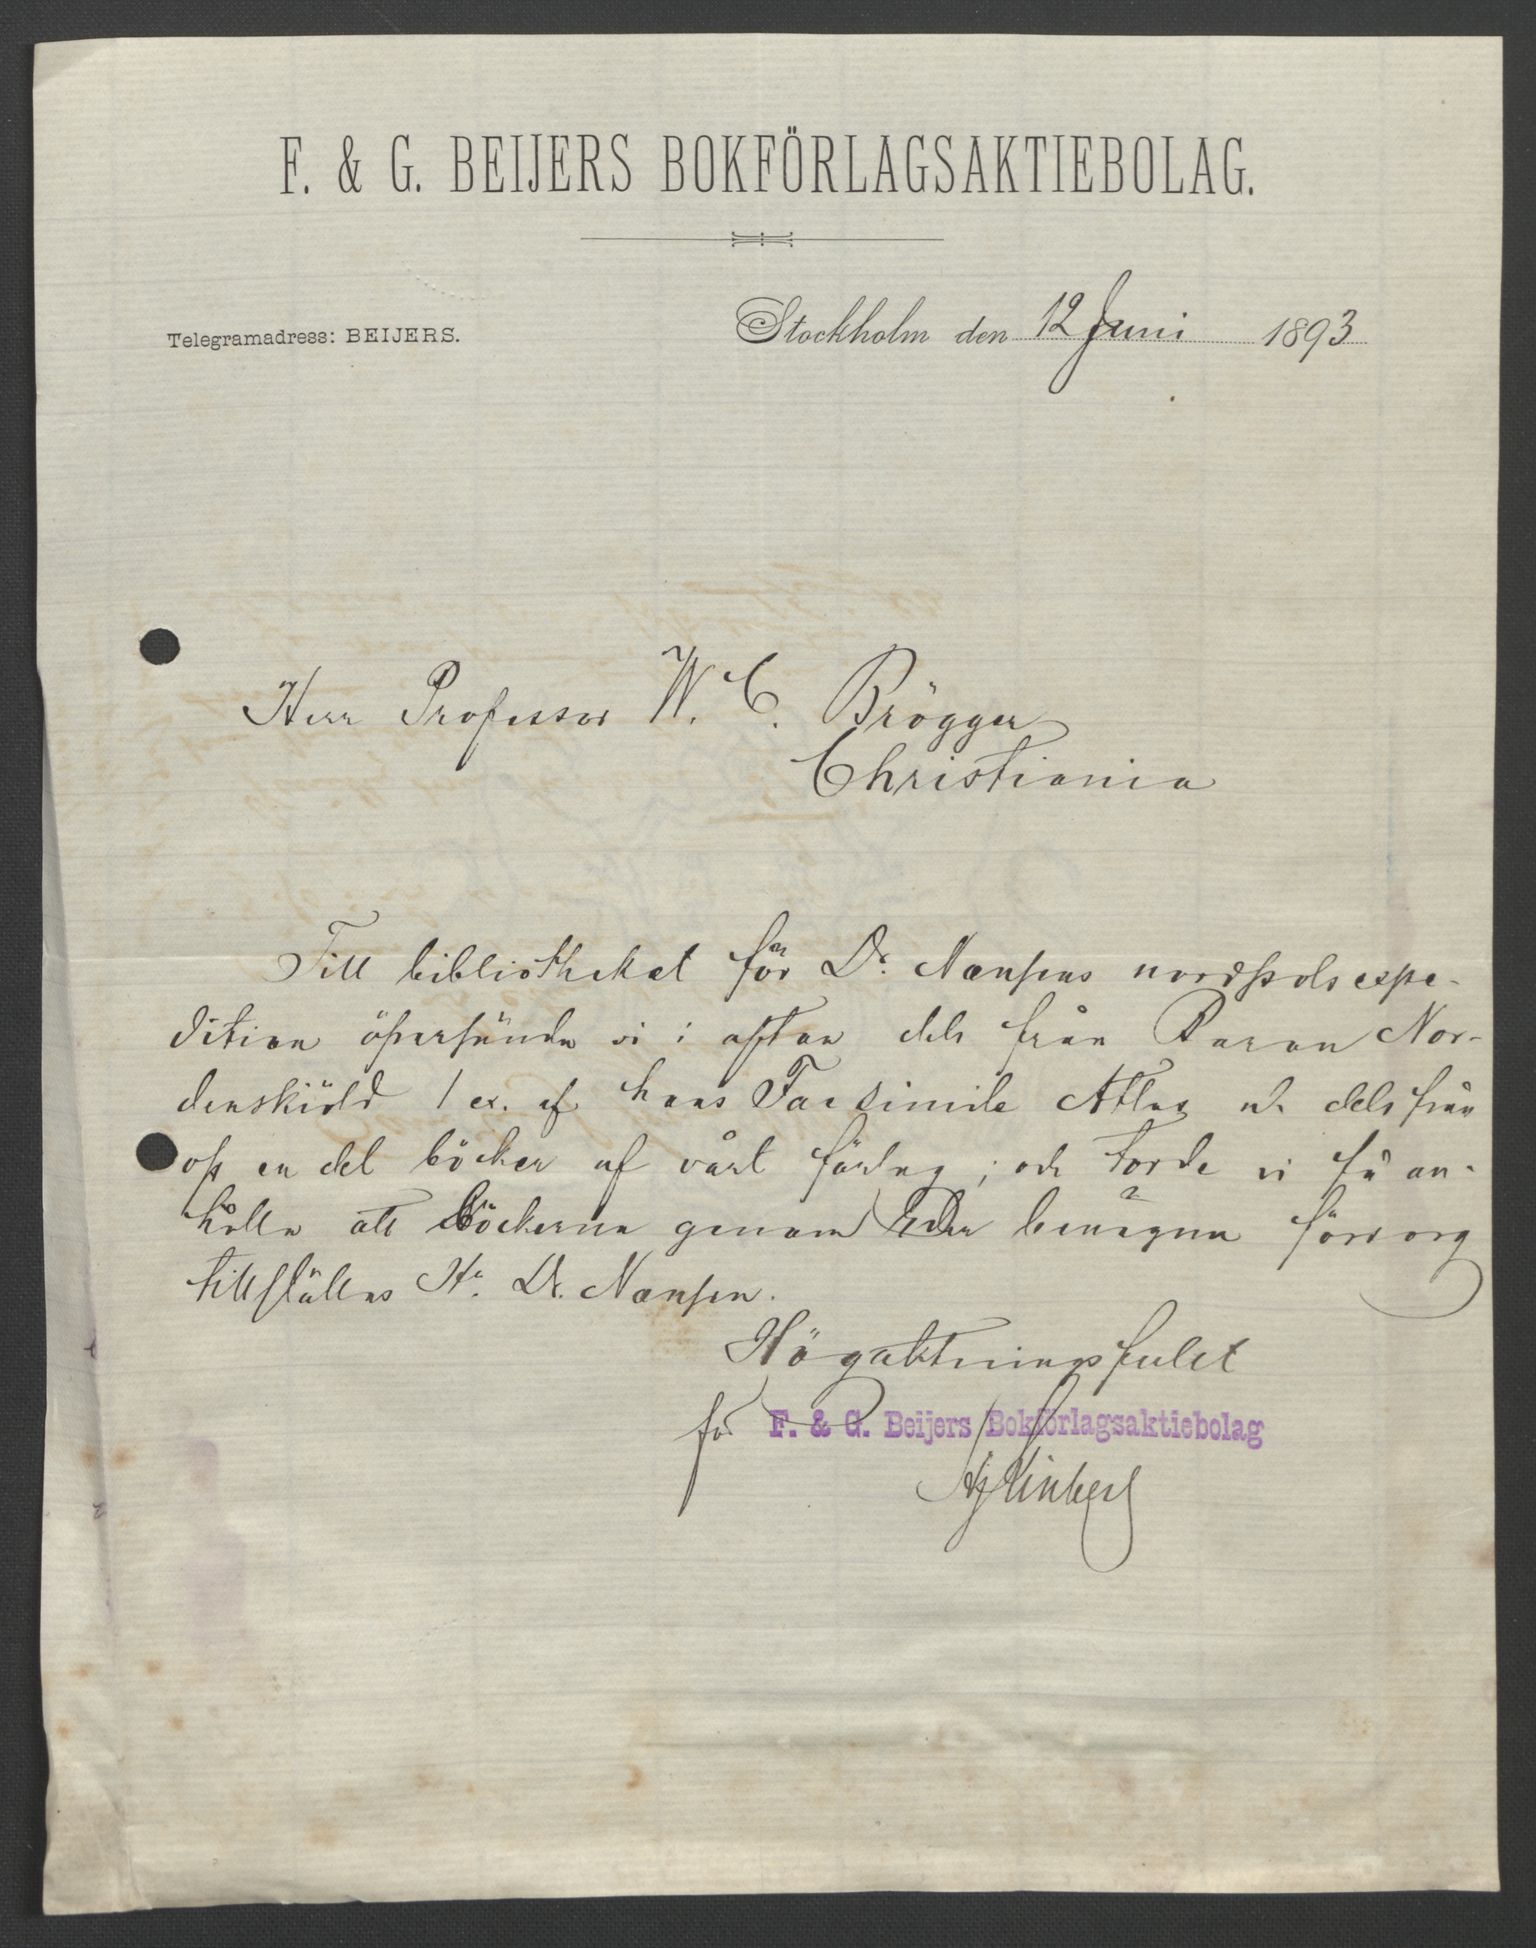 F. & G. BEIJERS BOKFÖRLAGSAKTIEBOLAG.
Telegramadress: BEIJERS.
Stockholm den 12 Juni 1893
Herr Professor W. C. Brögger
Christiania
Till bibliotheket för Dr. Nansens nordpolsexpe-
dition öfversända vi i afton dels från Baron Nor-
denskiöld 1 ex. af hans Facsimile Atlas och dels från
oss en del böcker af vårt förlag; och torde vi få an-
hålla att böckerna genom Eder benägna försorg
tillställas Hr. Dr. Nansen.
Högaktningsfullt
för F. & G. Beijers Bokförlagsaktiebolag